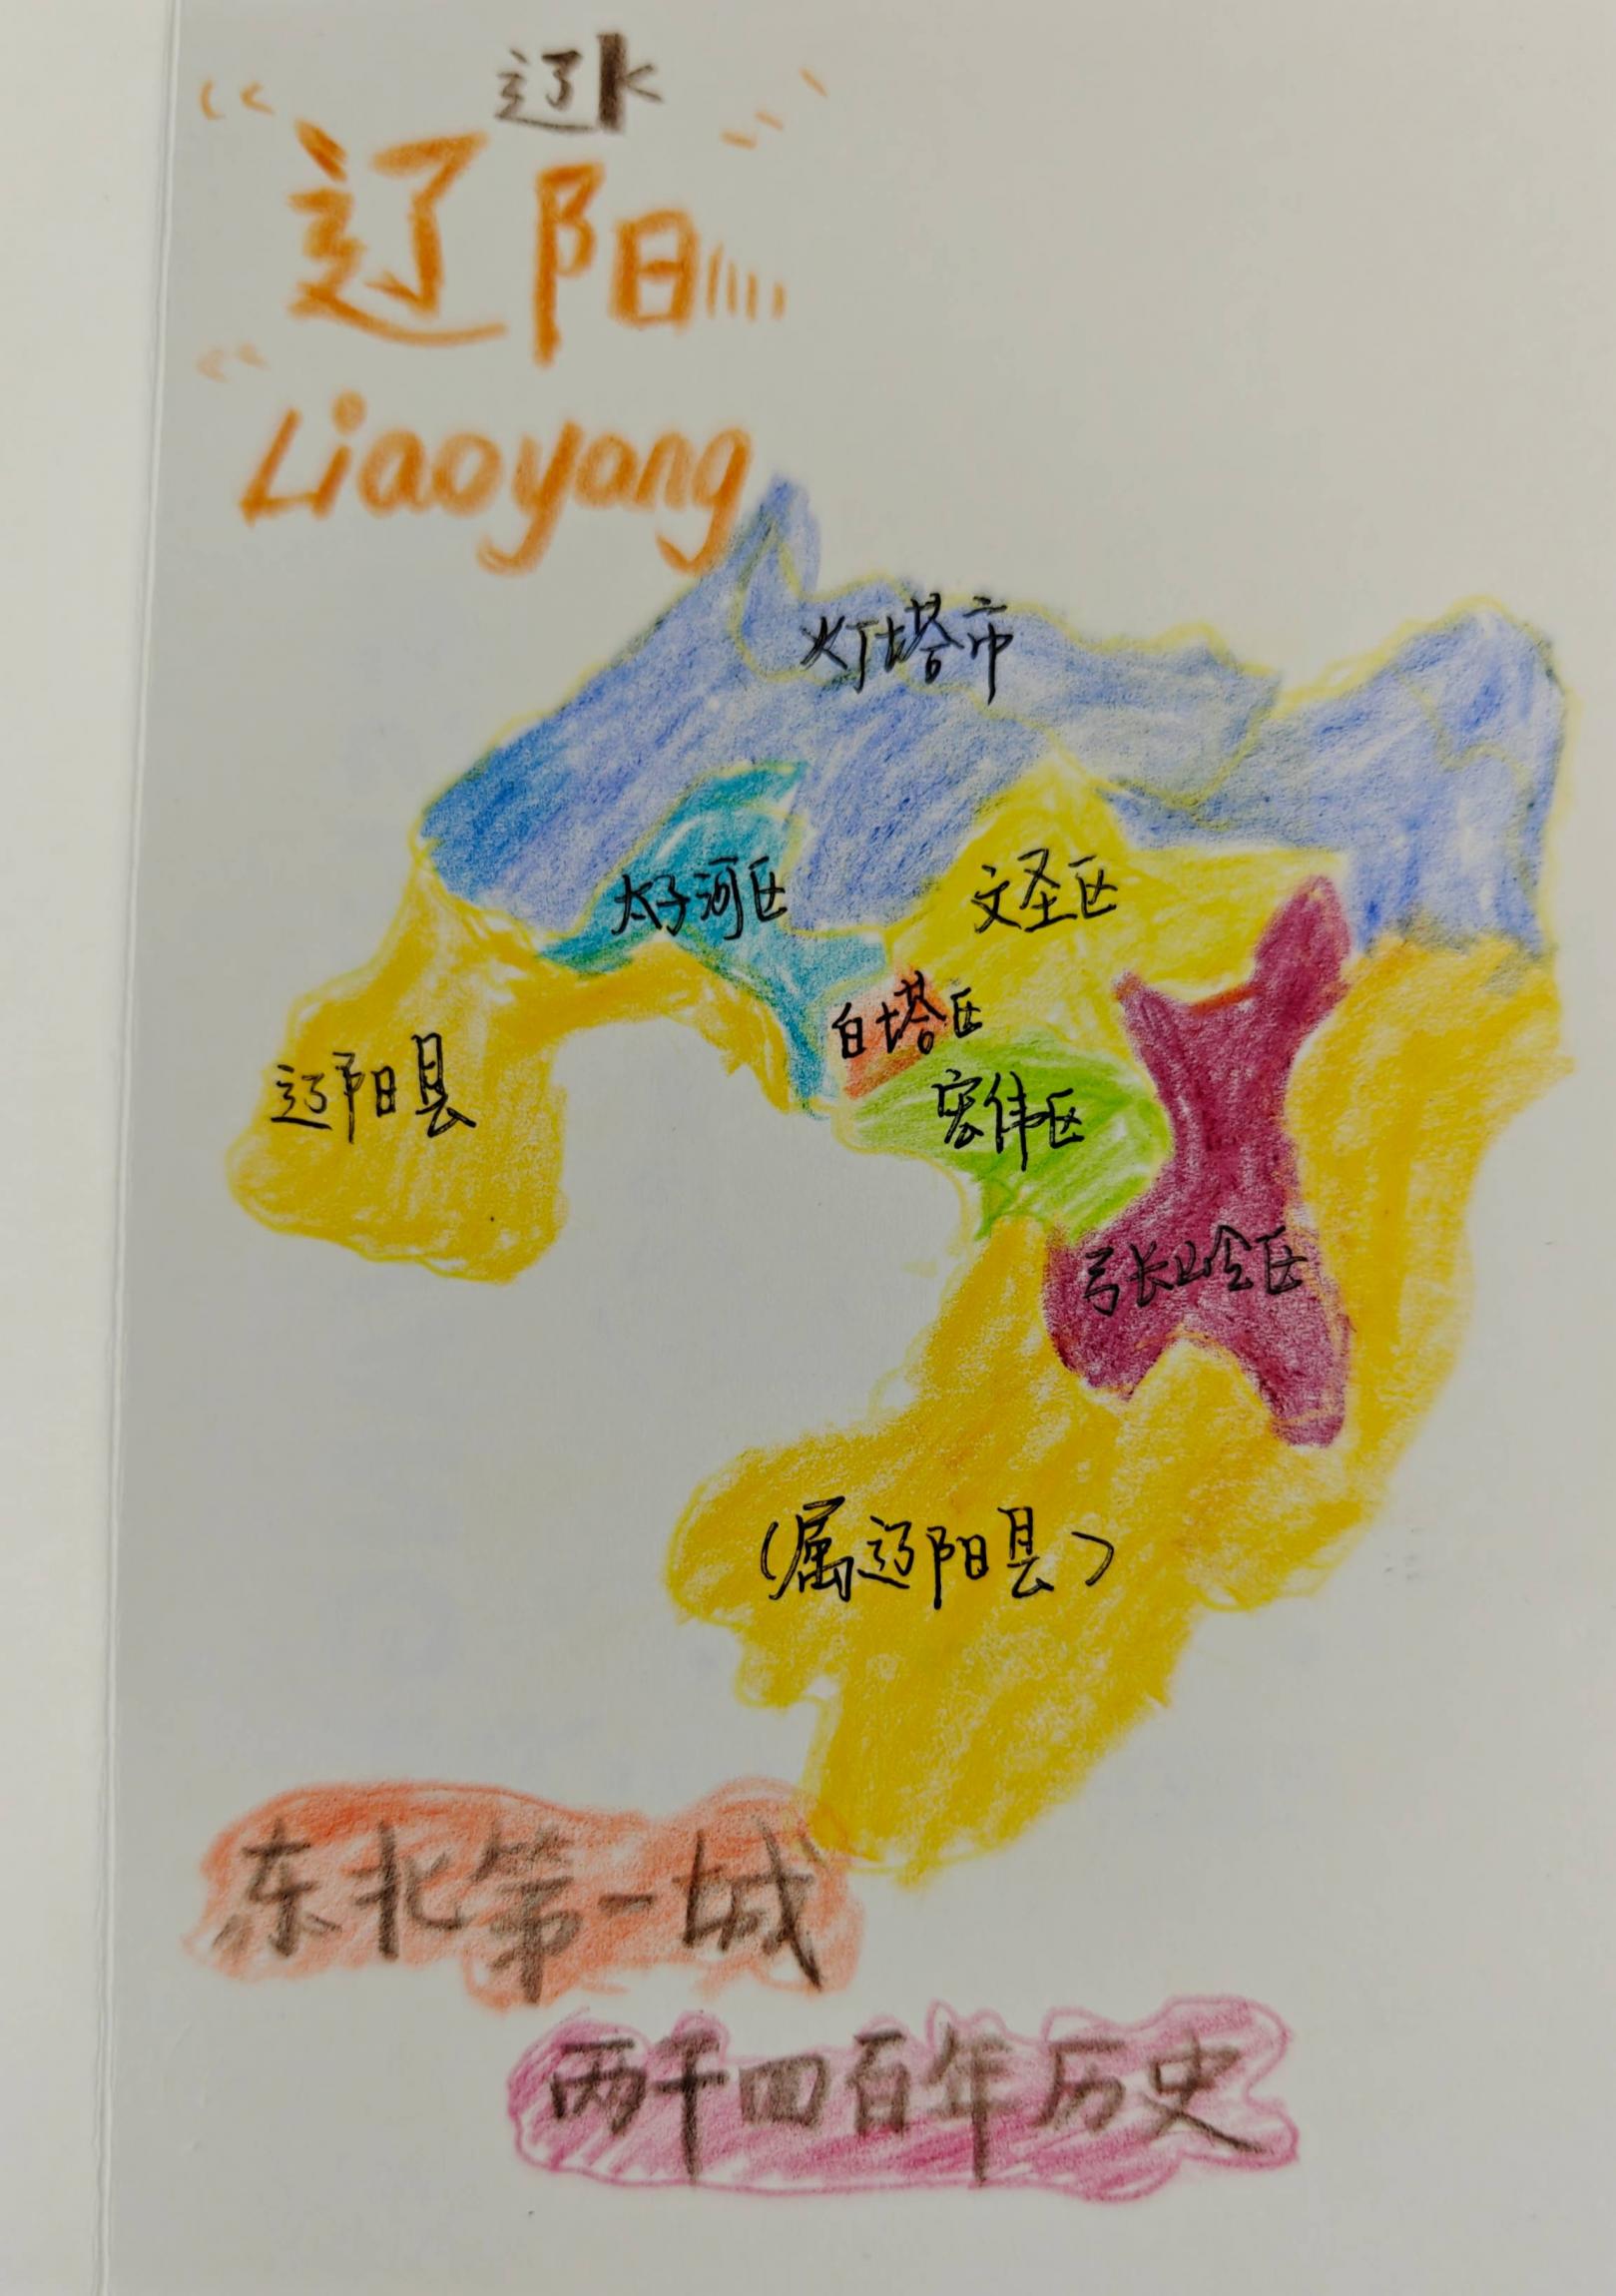 辽K
辽阳
Liaoyang
灯塔市
太子河区
文圣区
白塔区
辽阳县
宏伟区
弓长岭区
(属辽阳县)
东北第一城
两千四百年历史